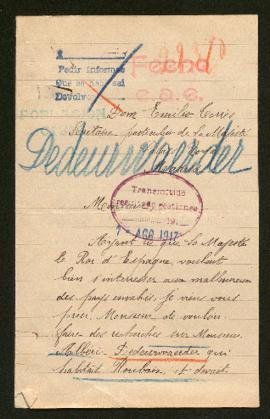 Pedir informes
Que en
Devolv
Fecha
C.D.C.
Dom Emilio
Secrétaire particulier de Sa Majesté
Dedeurwaerder
Monsieur
Transmitido
AGO 1917
Ayant vu que Sa Majesté
le Roi d'Espagne, voulait
bien s'interesser aux malheureux
des pays envahis, je viens vous
prier, Monsieur de vouloir
faire des recherches sur Monsieur
Dedeurwaerder qui
habitait Roubaix, et devait